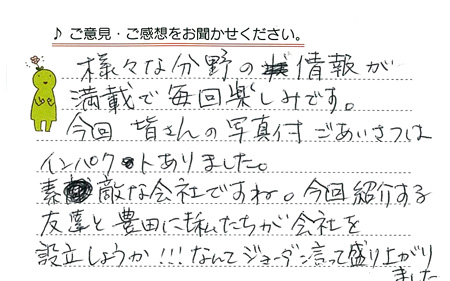 ♪ ご意見・ご感想をお聞かせください。
様々な分野の情報が
満載で毎回楽しみです。
今回 皆さんの写真付ごあいさつは
インパクトありました。
素敵な会社ですね。今回紹介する
友達と豊田に私たちが会社を
設立しようか!!!なんてジョーダン言って盛り上がり
ました